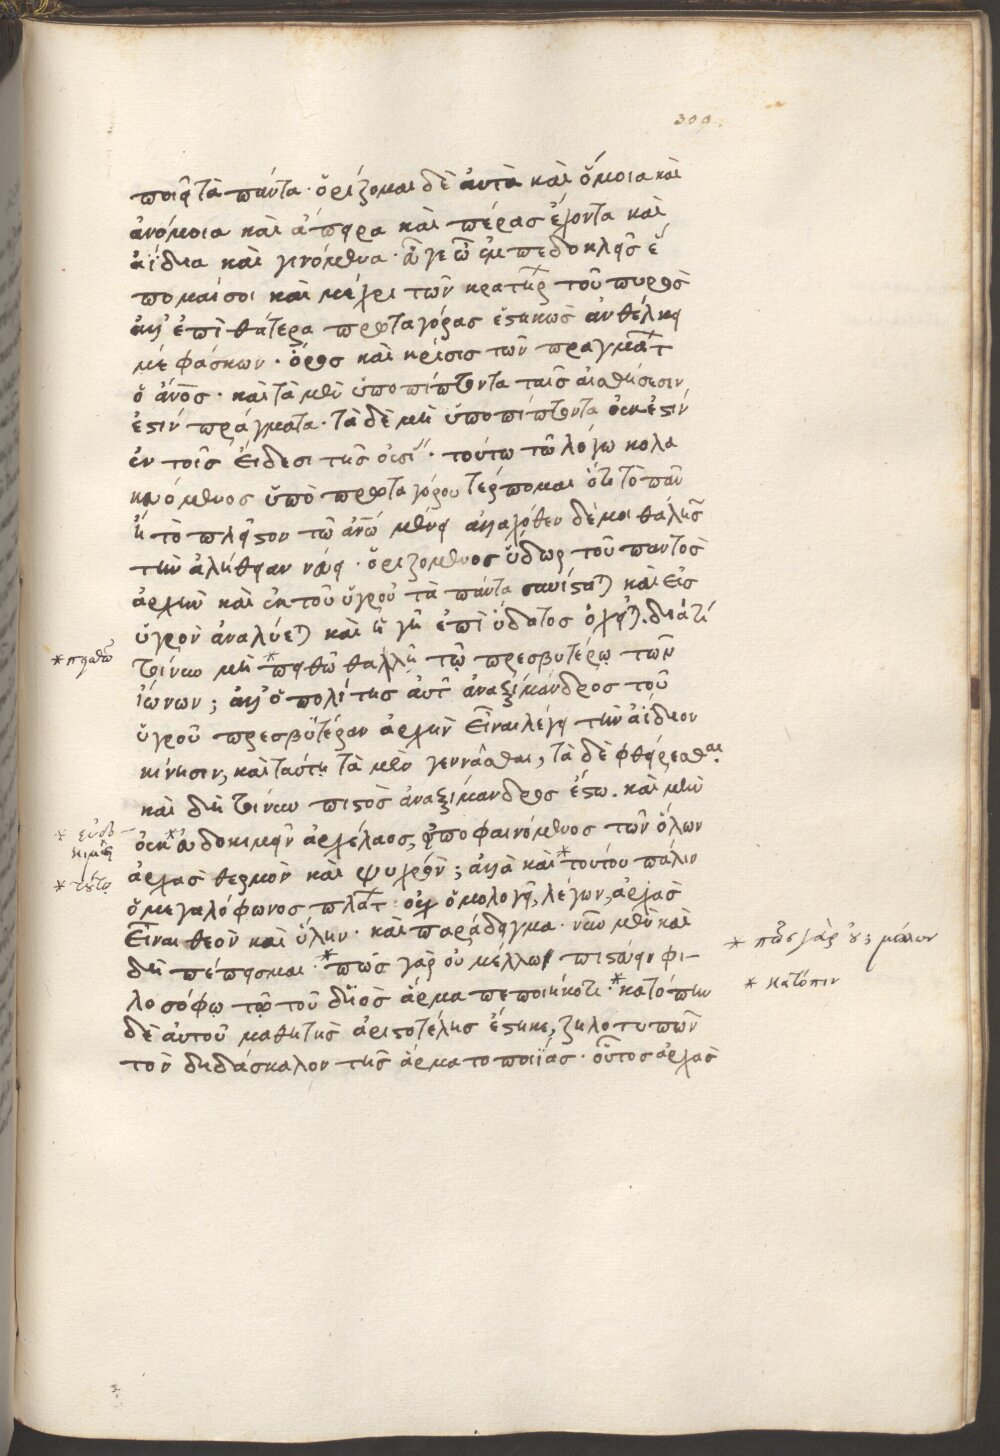 309.
ποιεῖ τὰ πάντα · ὁρίζομαι δὲ αὐτὰ καὶ ὅμοια καὶ
ἀνόμοια καὶ ἄπειρα καὶ πέρας ἔχοντα καὶ
ἀΐδια καὶ γινόμενα · ἄγε ὦ ἐμπεδοκλῆς ἕ
πομαί σοι καὶ μέχρι τῶν κρατήρ τοῦ πυρὸς
ἀλλ' ἐπὶ θάτερα πρωταγόρας ἑστηκὼς ἀνθέλκει
με φάσκων · ὅρος καὶ κρίσις τῶν πραγμάτ
ὁ ἄνος · καὶ τὰ μὲν ὑποπίπτοντα ταῖς αἰσθήσεσιν
ἐστὶν πράγματα · τὰ δὲ μὴ ὑποπίπτοντα οὐκ ἐστὶν
ἐν τοῖς εἴδεσι τῆς οὐσί · τούτω τῶ λόγω κολα
κευόμενος ὑπὸ πρωταγόρου τέρπομαι ὅτι τὸ πᾶν
ἢ τὸ πλεῖστον τῶ ἀνῶ μένει ἀλλαχόθεν δέ μοι θαλῆς
τὴν ἀλήθειαν νεύει · ὁριζόμενος ὕδωρ τοῦ παντὸς
ἀρχὴν καὶ ἐκ τοῦ ὑγροῦ τὰ πάντα συνίστα) καὶ εἰς
ὑγρὸν ἀναλύε) καὶ ἡ γῆ ἐπὶ ὕδατος ὀχεῖ). διὰ τί
τοίνυν μὴ *πειθῶ θαλῆ τῷ πρεσβυτέρῳ τῶν
ἰώνων; ἀλλ' ὁ πολίτης αὐτ ἀναξίμανδρος τοῦ
ὑγροῦ πρεσβυτέραν ἀρχὴν εἶναι λέγει τὴν ἀΐδιον
κίνησιν, καὶ ταύτῃ τὰ μὲν γεννᾶσθαι, τὰ δὲ φθείρεσθαι.
καὶ δὴ τοίνυν πιστὸς ἀναξίμανδρος ἔστω. καὶ μὴν
οὐκ *εὐδοκιμεῖν ἀρχέλαος, ἀποφαινόμενος τῶν ὅλων
ἀρχὰς θερμὸν καὶ ψυχρὸν; ἀλλὰ καὶ *τούτου πάλιν
ὁ μεγαλόφωνος πλάτ οὐχ ὁμολογεῖ, λέγων, ἀρχὰς
εἶναι θεὸν καὶ ὕλην · καὶ παράδειγμα · νῦν μὲν καὶ
δὴ πέπεισμαι · *πῶς γὰρ οὐ μέλλω πιστεύειν φι-
λοσόφῳ τῷ τοῦ διὸς ἅρμα πεποιηκότι · *κατόπιν
δὲ αὐτοῦ μαθητὴς ἀριστοτέλης ἕστηκε, ζηλοτυπῶν
τὸν διδάσκαλον τῆς ἁρματοποιΐας · οὗτος ἀρχὰς
* πειθῶ
* εὐδο-
κιμεῖ
* τούτῳ
* πῶς γὰρ οὐ; μέλλων
* κατόπιν